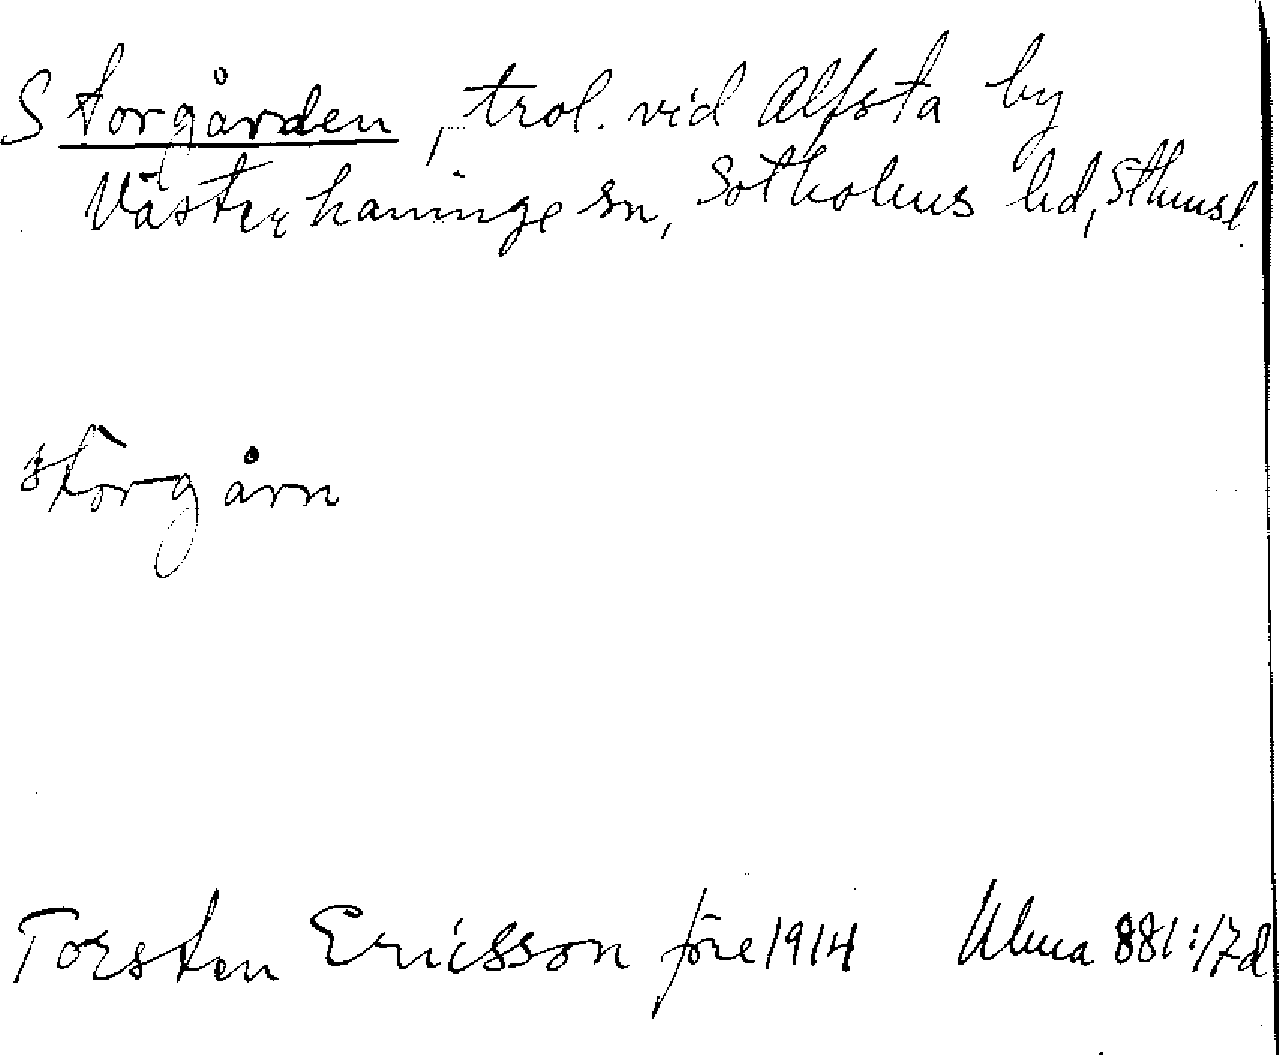 Storgården, trol. vid Alfsta by
Västerhaninge sn, Sotholms hd, Sthmsl.
storgårn
Torsten Ericsson före 1914 Ulma 881:17d